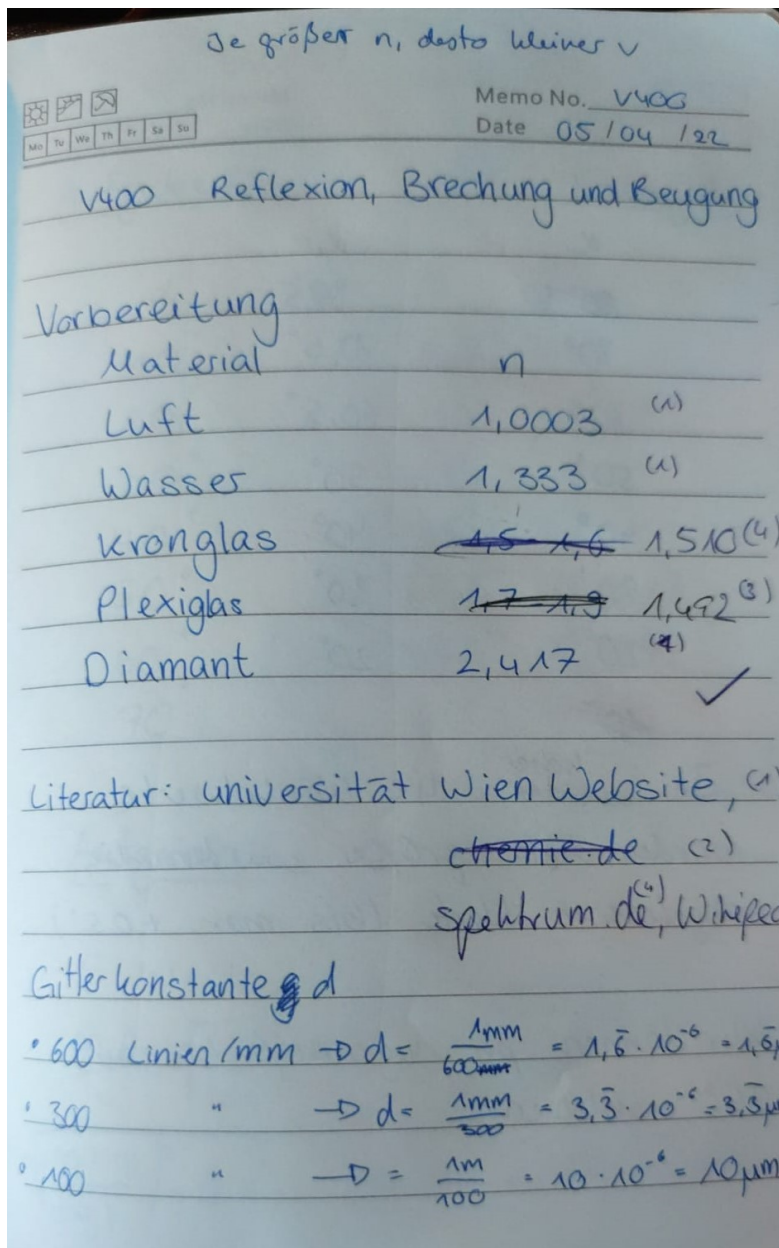 Je größer n, desto kleiner v
Memo No. V400
Mo Tu We Th Fr Sa Su
Date 05/04/22
V400 Reflexion, Brechung und Beugung
Vorbereitung
Material n
Luft 1,0003 (1)
Wasser 1,333 (1)
Kronglas 1,5 - 1,6 1,510 (4)
Plexiglas 1,7 - 1,9 1,492 (3)
Diamant 2,417 (4)
Literatur: Universität Wien Website, (1)
chemie.de (2)
spektrum.de, (4) Wikiped
Gitterkonstante d
• 600 Linien/mm → d = 1mm/600mm = 1,6̅ · 10⁻⁶ = 1,6̅
• 300 " → d = 1mm/300 = 3,3̅ · 10⁻⁶ = 3,3̅ μ
• 100 " → = 1m/100 = 10 · 10⁻⁶ = 10 μm